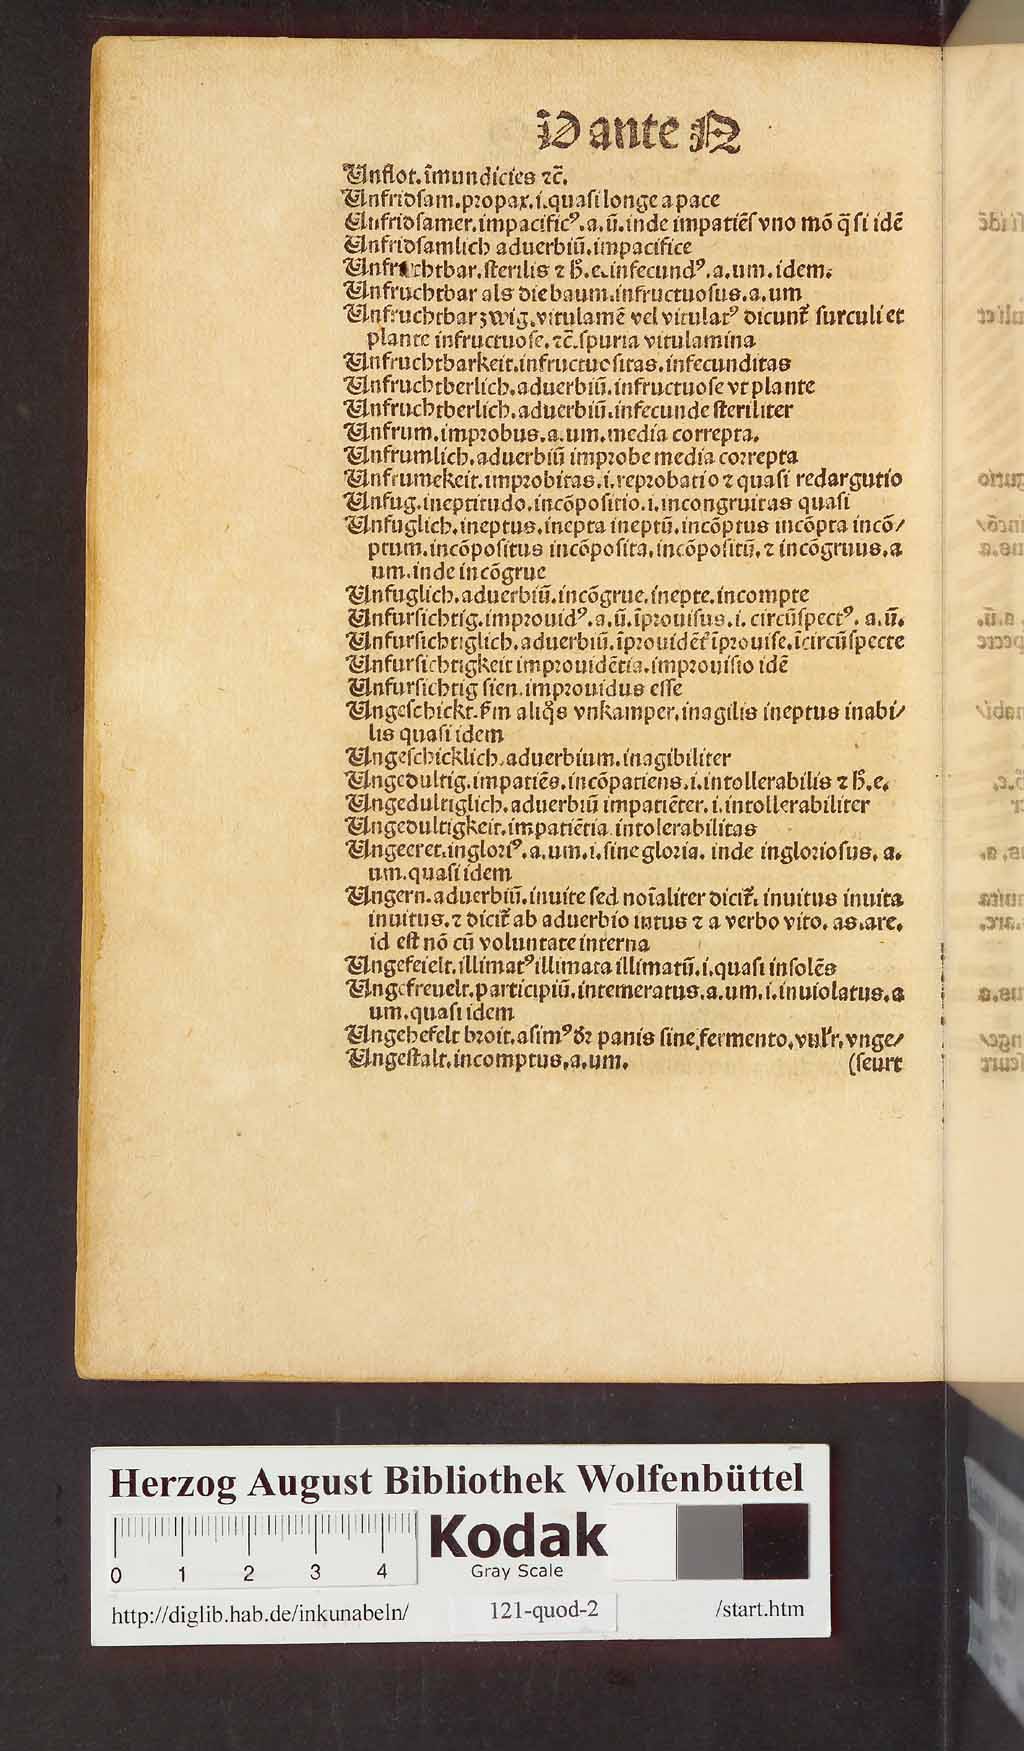 V ante N
Unflot. īmundicies ⁊c̄.
Unfridsam. propax. i. quasi longe a pace
Unfridsamer. impacificꝰ. a. ū. inde impatiēs vno mō q̄si idē
Unfridsamlich aduerbiū. impacifice
Unfruchtbar. sterilis ⁊ h̄. e. infecundꝰ. a. um. idem.
Unfruchtbar als die baum. infructuosus. a. um
Unfruchtbar zwig. vitulamē vel vitulatꝰ dicunt̄ surculi et
plante infructuose. ⁊c̄. spuria vitulamina
Unfruchtbarkeit. infructuositas. infecunditas
Unfruchtberlich. aduerbiū. infructuose vt plante
Unfruchtberlich. aduerbiū. infecunde steriliter
Unfrum. improbus. a. um. media correpta.
Unfrumlich. aduerbiū improbe media correpta
Unfrumekeit. improbitas. i. reprobatio ⁊ quasi redargutio
Unfug. ineptitudo. incōpositio. i. incongruitas quasi
Unfuglich. ineptus. inepta ineptū. incōptus incōpta incō/
ptum. incōpositus incōposita. incōpositū. ⁊ incōgruus. a
um. inde incōgrue
Unfuglich. aduerbiū. incōgrue. inepte. incompte
Unfursichtig. improuidꝰ. a. ū. īprouisus. i. circūspectꝰ. a. ū.
Unfursichtiglich. aduerbiū. īprouidēt̄ īprouise. īcircūspecte
Unfursichtigkeit improuidētia. improuisio idē
Unfursichtig sien. improuidus esse
Ungeschickt. s̄m aliq̄s vnkamper. inagilis ineptus inabi/
lis quasi idem
Ungeschicklich. aduerbium. inagibiliter
Ungedultig. impatiēs. incōpatiens. i. intollerabilis ⁊ h̄. e.
Ungedultiglich. aduerbiū impatiēter. i. intollerabiliter
Ungedultigkeit. impatiētia intolerabilitas
Ungeeret. inglorꝰ. a. um. i. sine gloria. inde ingloriosus. a.
um. quasi idem
Ungern. aduerbiū. inuite sed noīaliter dicit̄. inuitus inuita
inuitus. ⁊ dicit̄ ab aduerbio intus ⁊ a verbo vito. as. are.
id est nō cū voluntate interna
Ungefeielt. illimatꝰ illimata illimatū. i. quasi insolēs
Ungefreuelt. participiū. intemeratus. a. um. i. inuiolatus. a
um. quasi idem
Ungehefelt broit. asimꝰ d̄r panis sine fermento. vul̄r. vnge/
Ungestalt. incomptus. a. um. (seurt
Herzog August Bibliothek Wolfenbüttel
0 1 2 3 4
Kodak
Gray Scale
http://diglib.hab.de/inkunabeln/ 121-quod-2 /start.htm